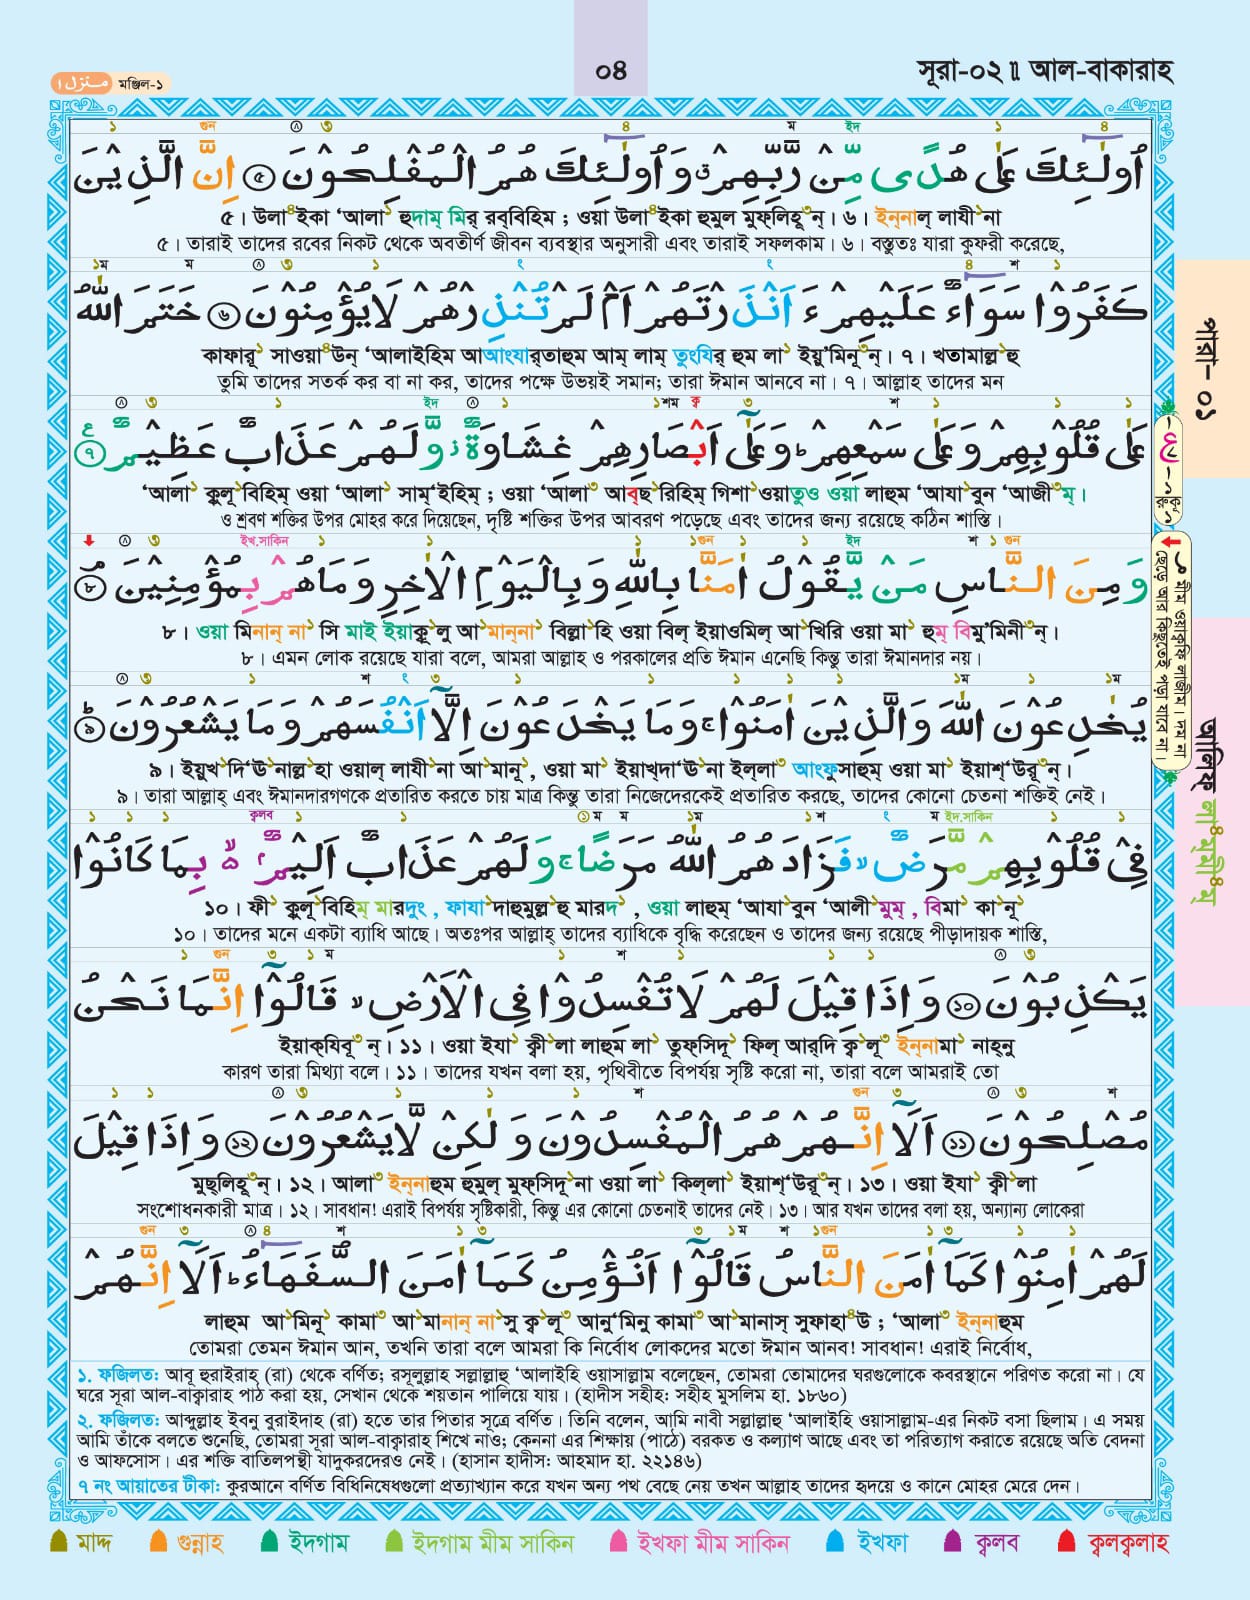 منزل ۱ মঞ্জিল-১
০৪
সূরা-০২ ॥ আল-বাকারাহ
اُولٰٓئِكَ عَلٰى هُدًى مِّنْ رَّبِّهِمْ ۗ وَاُولٰٓئِكَ هُمُ الْمُفْلِحُوْنَ ۝۵ اِنَّ الَّذِيْنَ
৫। উলা৪ইকা ‘আলা১ হুদাম্ মির্ রব্বিহিম ; ওয়া উলা৪ইকা হুমুল মুফ্‌লিহূ৩ন্। ৬। ইন্‌নাল্ লাযী১না
৫। তারাই তাদের রবের নিকট থেকে অবতীর্ণ জীবন ব্যবস্থার অনুসারী এবং তারাই সফলকাম। ৬। বস্তুতঃ যারা কুফরী করেছে,
كَفَرُوْا سَوَآءٌ عَلَيْهِمْ ءَاَنْذَرْتَهُمْ اَمْ لَمْ تُنْذِرْهُمْ لَا يُؤْمِنُوْنَ ۝۶ خَتَمَ اللّٰهُ
কাফারূ১ সাওয়া৪উন্ ‘আলাইহিম আআংযার্‌তাহুম আম্ লাম্ তুংযির্ হুম লা১ ইয়ু’মিনূ৩ন্। ৭। খতামাল্ল১হু
তুমি তাদের সতর্ক কর বা না কর, তাদের পক্ষে উভয়ই সমান; তারা ঈমান আনবে না। ৭। আল্লাহ তাদের মন
عَلٰى قُلُوْبِهِمْ وَعَلٰى سَمْعِهِمْ ؕ وَعَلٰٓى اَبْصَارِهِمْ غِشَاوَةٌ ز وَّلَهُمْ عَذَابٌ عَظِيْمٌ ۝۷
‘আলা১ কুলূ১বিহিম্ ওয়া ‘আলা১ সাম্‘ইহিম্ ; ওয়া ‘আলা৩ আব্‌ছ১রিহিম্ গিশা১ওয়াতুও ওয়া লাহুম ‘আযা১বুন ‘আজী৩ম্।
ও শ্রবণ শক্তির উপর মোহর করে দিয়েছেন, দৃষ্টি শক্তির উপর আবরণ পড়েছে এবং তাদের জন্য রয়েছে কঠিন শাস্তি।
وَمِنَ النَّاسِ مَنْ يَّقُوْلُ اٰمَنَّا بِاللّٰهِ وَبِالْيَوْمِ الْاٰخِرِ وَمَا هُمْ بِمُؤْمِنِيْنَ ۝۸
৮। ওয়া মিনান্ না১সি মাই ইয়াক্বূ১লু আ১মান্‌না১ বিল্লা১হি ওয়া বিল্ ইয়াওমিল্ আ১খিরি ওয়া মা১ হুম্ বিমু’মিনী৩ন্।
৮। এমন লোক রয়েছে যারা বলে, আমরা আল্লাহ ও পরকালের প্রতি ঈমান এনেছি কিন্তু তারা ঈমানদার নয়।
يُخٰدِعُوْنَ اللّٰهَ وَالَّذِيْنَ اٰمَنُوْا ۚ وَمَا يَخْدَعُوْنَ اِلَّآ اَنْفُسَهُمْ وَمَا يَشْعُرُوْنَ ۝۹
৯। ইয়ুখ১দি‘ঊ১নাল্ল১হা ওয়াল্ লাযী১না আ১মানূ১, ওয়া মা১ ইয়াখ্‌দা‘ঊ১না ইল্‌লা৩ আংফুসাহুম্ ওয়া মা১ ইয়াশ্‘উরূ৩ন্।
৯। তারা আল্লাহ্ এবং ঈমানদারগণকে প্রতারিত করতে চায় মাত্র কিন্তু তারা নিজেদেরকেই প্রতারিত করছে, তাদের কোনো চেতনা শক্তিই নেই।
فِيْ قُلُوْبِهِمْ مَّرَضٌ ۙ فَزَادَهُمُ اللّٰهُ مَرَضًا ۚ وَلَهُمْ عَذَابٌ اَلِيْمٌۢ ۙ بِمَا كَانُوْا
১০। ফী১ কুলূ১বিহিম্ মারদুং , ফাযা১দাহুমুল্ল১হু মারদ১ , ওয়া লাহুম্ ‘আযা১বুন ‘আলী১মুম্ , বিমা১ কা১নূ১
১০। তাদের মনে একটা ব্যাধি আছে। অতঃপর আল্লাহ্ তাদের ব্যাধিকে বৃদ্ধি করেছেন ও তাদের জন্য রয়েছে পীড়াদায়ক শাস্তি,
يَكْذِبُوْنَ ۝۱۰ وَاِذَا قِيْلَ لَهُمْ لَا تُفْسِدُوْا فِي الْاَرْضِ ۙ قَالُوْٓا اِنَّمَا نَحْنُ
ইয়াক্‌যিবূ৩ন্। ১১। ওয়া ইযা১ ক্বী১লা লাহুম লা১ তুফ্‌সিদূ১ ফিল্ আর্‌দি ক্ব১লূ৩ ইন্‌নামা১ নাহ্‌নু
কারণ তারা মিথ্যা বলে। ১১। তাদের যখন বলা হয়, পৃথিবীতে বিপর্যয় সৃষ্টি করো না, তারা বলে আমরাই তো
مُصْلِحُوْنَ ۝۱۱ اَلَآ اِنَّهُمْ هُمُ الْمُفْسِدُوْنَ وَلٰكِنْ لَّا يَشْعُرُوْنَ ۝۱۲ وَاِذَا قِيْلَ
মুছ্‌লিহূ৩ন্। ১২। আলা৩ ইন্‌নাহুম হুমুল্ মুফ্‌সিদূ১না ওয়া লা১ কিল্‌লা১ ইয়াশ্‘উরূ৩ন্। ১৩। ওয়া ইযা১ ক্বী১লা
সংশোধনকারী মাত্র। ১২। সাবধান! এরাই বিপর্যয় সৃষ্টিকারী, কিন্তু এর কোনো চেতনাই তাদের নেই। ১৩। আর যখন তাদের বলা হয়, অন্যান্য লোকেরা
لَهُمْ اٰمِنُوْا كَمَآ اٰمَنَ النَّاسُ قَالُوْٓا اَنُؤْمِنُ كَمَآ اٰمَنَ السُّفَهَآءُ ؕ اَلَآ اِنَّهُمْ
লাহুম আ১মিনূ১ কামা৩ আ১মানান্ না১সু ক্ব১লূ৩ আনু’মিনু কামা৩ আ১মানাস্ সুফাহা৪উ ; ‘আলা৩ ইন্‌নাহুম
তোমরা তেমন ঈমান আন, তখনি তারা বলে আমরা কি নির্বোধ লোকদের মতো ঈমান আনব! সাবধান! এরাই নির্বোধ,
১. ফজিলত: আবূ হুরাইরাহ (রা) থেকে বর্ণিত; রসূলুল্লাহ সল্লাল্লাহু ‘আলাইহি ওয়াসাল্লাম বলেছেন, তোমরা তোমাদের ঘরগুলোকে কবরস্থানে পরিণত করো না। যে
ঘরে সূরা আল-বাক্বারাহ পাঠ করা হয়, সেখান থেকে শয়তান পালিয়ে যায়। (হাদীস সহীহ: সহীহ মুসলিম হা. ১৮৬০)
২. ফজিলত: আব্দুল্লাহ ইবনু বুরাইদাহ (রা) হতে তার পিতার সূত্রে বর্ণিত। তিনি বলেন, আমি নাবী সল্লাল্লাহু ‘আলাইহি ওয়াসাল্লাম-এর নিকট বসা ছিলাম। এ সময়
আমি তাঁকে বলতে শুনেছি, তোমরা সূরা আল-বাক্বারাহ শিখে নাও; কেননা এর শিক্ষায় (পাঠে) বরকত ও কল্যাণ আছে এবং তা পরিত্যাগ করাতে রয়েছে অতি বেদনা
ও আফসোস। এর শক্তি বাতিলপন্থী যাদুকরদেরও নেই। (হাসান হাদীস: আহমাদ হা. ২২১৪৬)
৭ নং আয়াতের টীকা: কুরআনে বর্ণিত বিধিনিষেধগুলো প্রত্যাখ্যান করে যখন অন্য পথ বেছে নেয় তখন আল্লাহ তাদের হৃদয়ে ও কানে মোহর মেরে দেন।
মাদ্দ গুন্নাহ ইদগাম ইদগাম মীম সাকিন ইখফা মীম সাকিন ইখফা ক্বলব ক্বলক্বলাহ
পারা- ০১
ع
রুকু ১
মীম ওয়াক্বফি লাজীম। দম না
ছেড়ে আর কিছুতেই পড়া যাবে না।
আলিফ্ লা৪ম্‌মী৪ম্